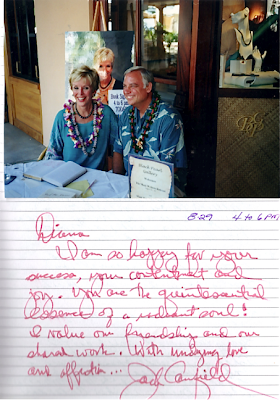 Book Signing
4 to 6 pm
8·29 4 to 6 PM
Diana
I am so happy for your
success, your contentment and
joy. You are the quintessential
essence of a radiant soul!
I value our friendship and our
shared work. With undying love
and affection...
Jack Canfield